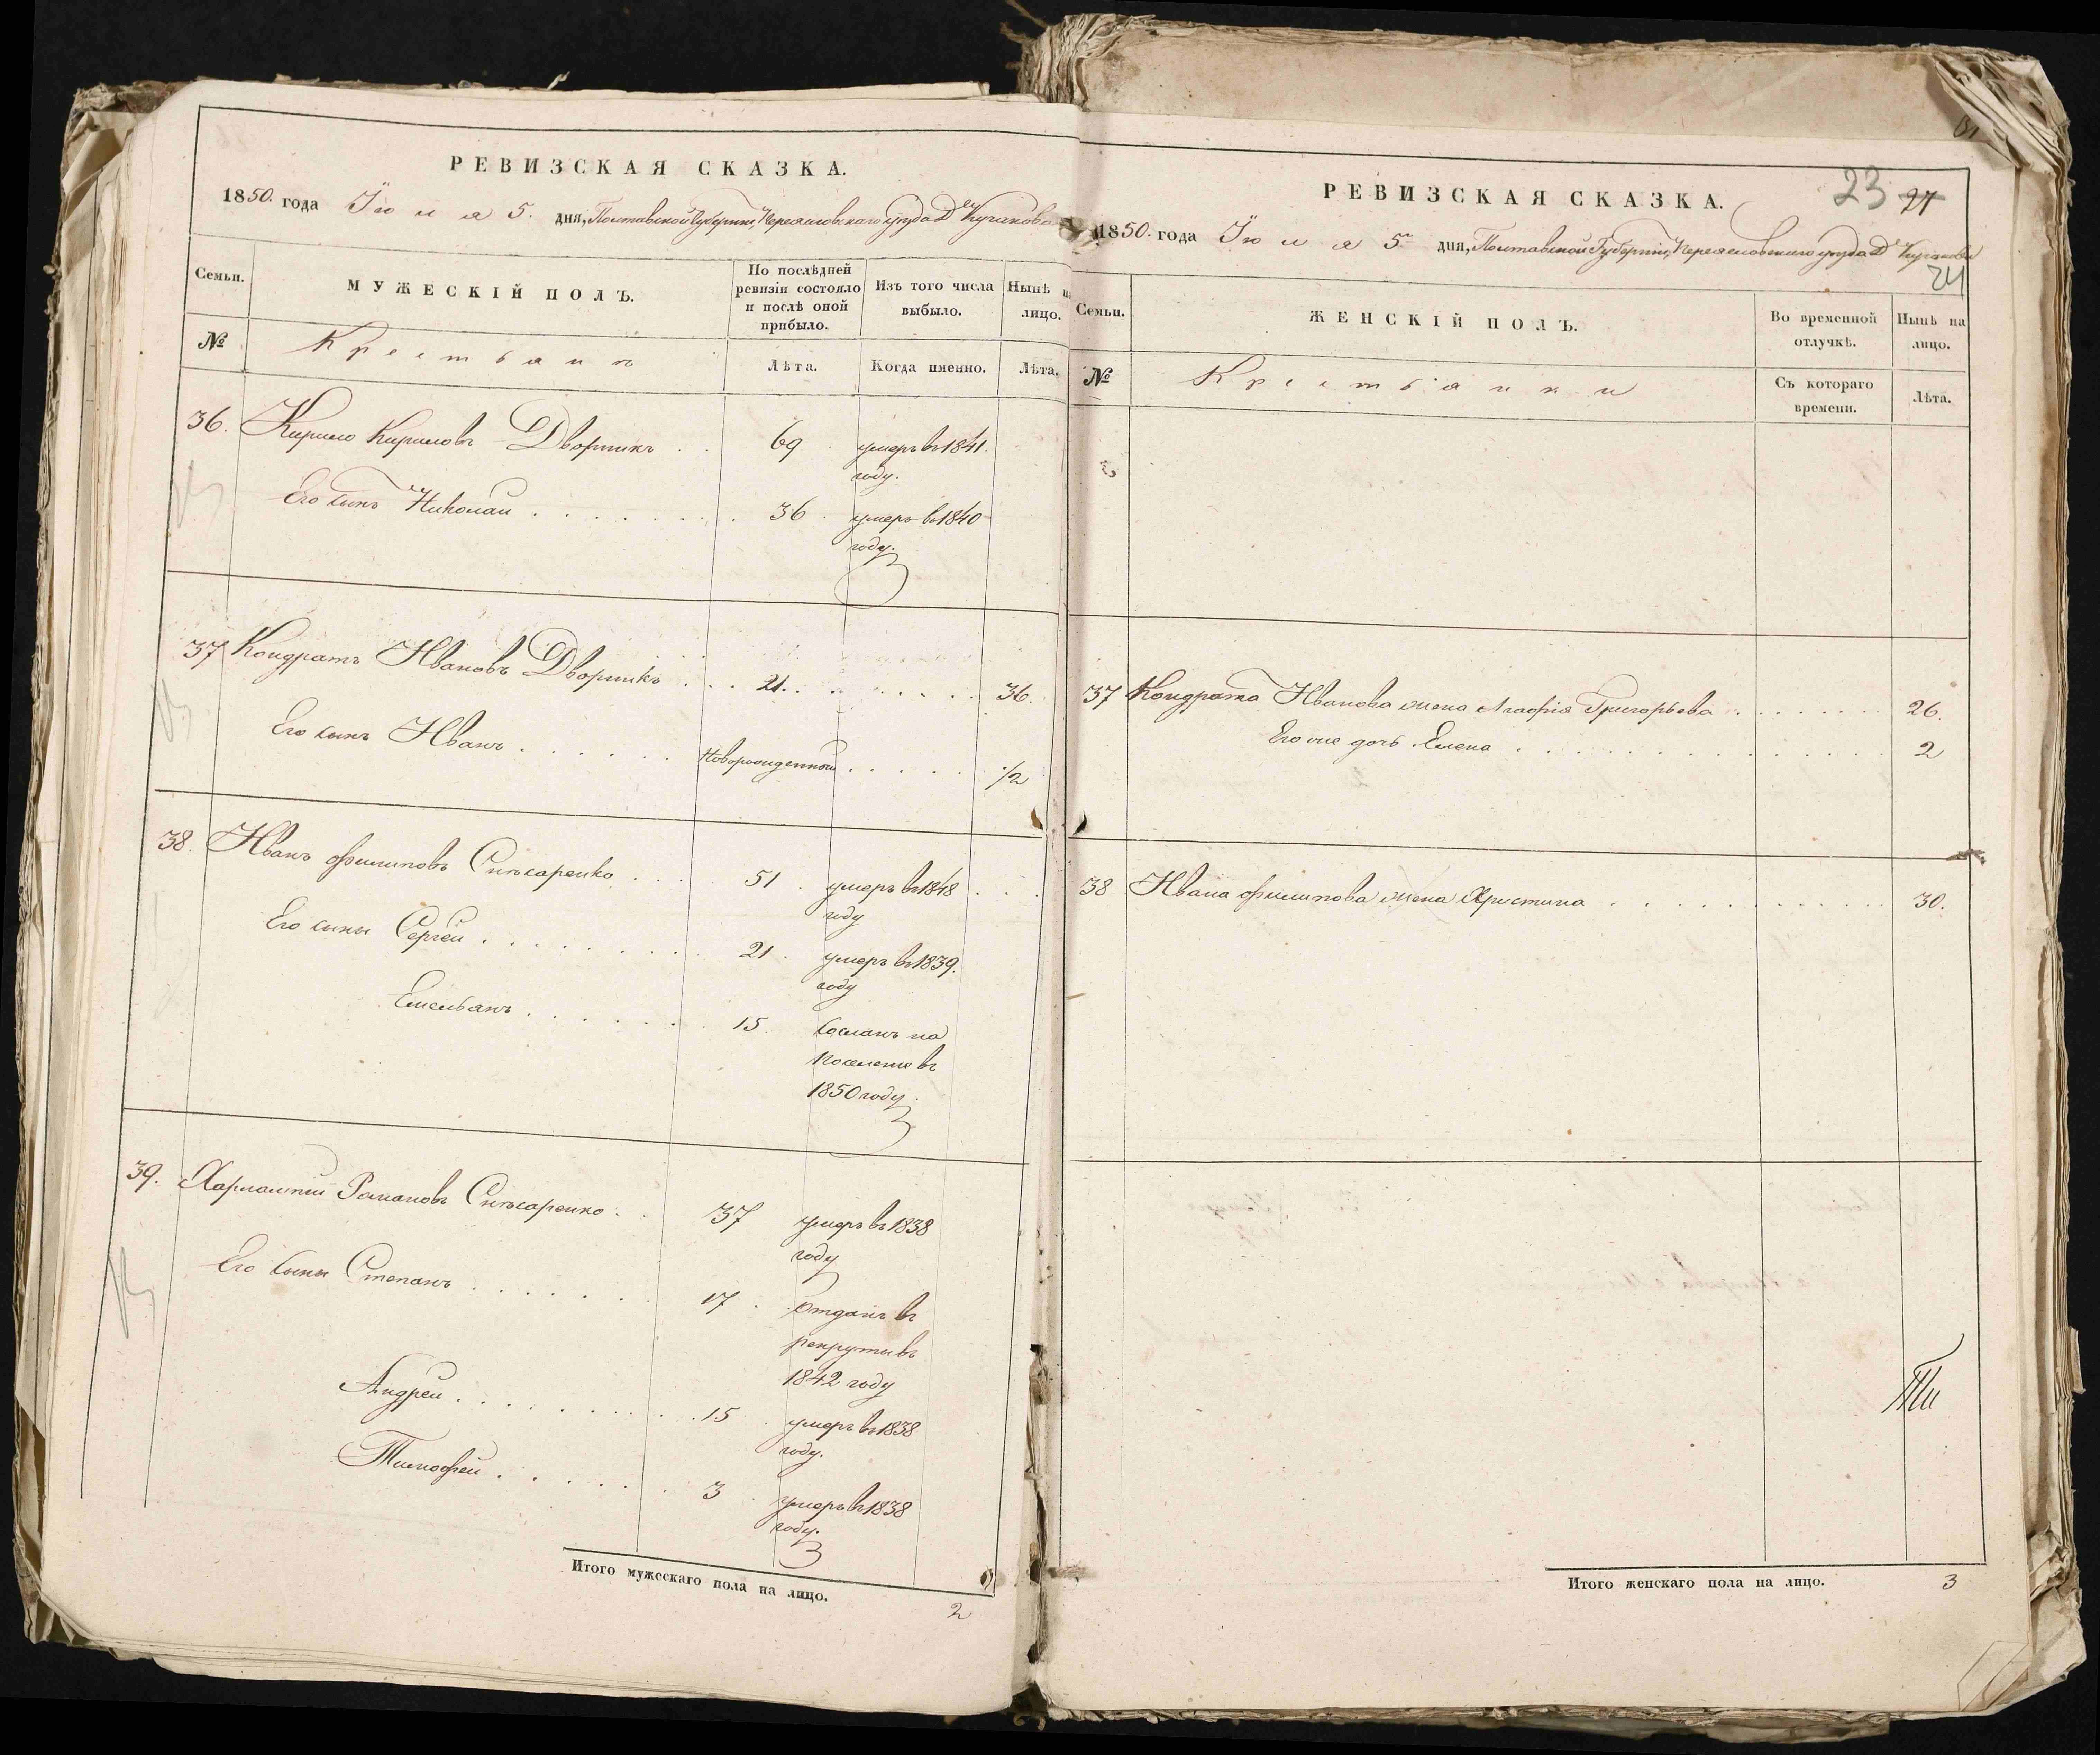 РЕВИЗСКАЯ СКАЗКА.
1850. года Іюля 5. дня, Полтавской Губерніи, Переяславскаго уѣзда Д. Кучакова
Семьи.
МУЖЕСКІЙ ПОЛЪ.
По послѣдней ревизіи состояло и послѣ оной прибыло.
Изъ того числа выбыло.
Нынѣ на лицо.
№
Крестьянъ
Лѣта.
Когда именно.
Лѣта.
36. Кирило Кириловъ Дворникъ . . 69 . умеръ въ 1841.
году.
Его сынъ Николай . . . . . . . 36 . умеръ въ 1840
году.
37 Кондратъ Ивановъ Дворникъ . . . 21. . . . . . . . 36.
Его сынъ Иванъ . . . . . . Новорожденный . . . . . ½
38. Иванъ Филиповъ Снѣсаренко . . . 51 . умеръ въ 1848 . . .
году
Его сыны Сергей . . . . . . . . 21 . умеръ въ 1839.
году
Емельянъ . . . . . . . 15 Сосланъ на
поселеніе въ
1850 году.
39. Харлампий Романовъ Снѣсаренко . . 37 умеръ въ 1838
году
Его сыны Степанъ . . . . . . . 17 . Отданъ въ
рекруты въ
1842 году
Андрей . . . . . . . . . . 15 . умеръ въ 1838
году.
Тимофей . . . . . . 3 . умеръ въ 1838
году.
Итого мужескаго пола на лицо.
2
23 24
РЕВИЗСКАЯ СКАЗКА.
1850. года Іюля 5го дня, Полтавской Губерніи, Переяславскаго уѣзда Д. Кучакова
24
Семьи.
ЖЕНСКІЙ ПОЛЪ.
Во временной отлучкѣ.
Нынѣ на лицо.
№
Крестьянки
Съ котораго времени.
Лѣта.
37 Кондрата Иванова жена Агафія Григорьева . . . . . . . 26.
Его же дочь Елена . . . . . . . . . . . . . . 2
38 Ивана Филипова жена Христина . . . . . . . . . . . . 30.
Итого женскаго пола на лицо. 3